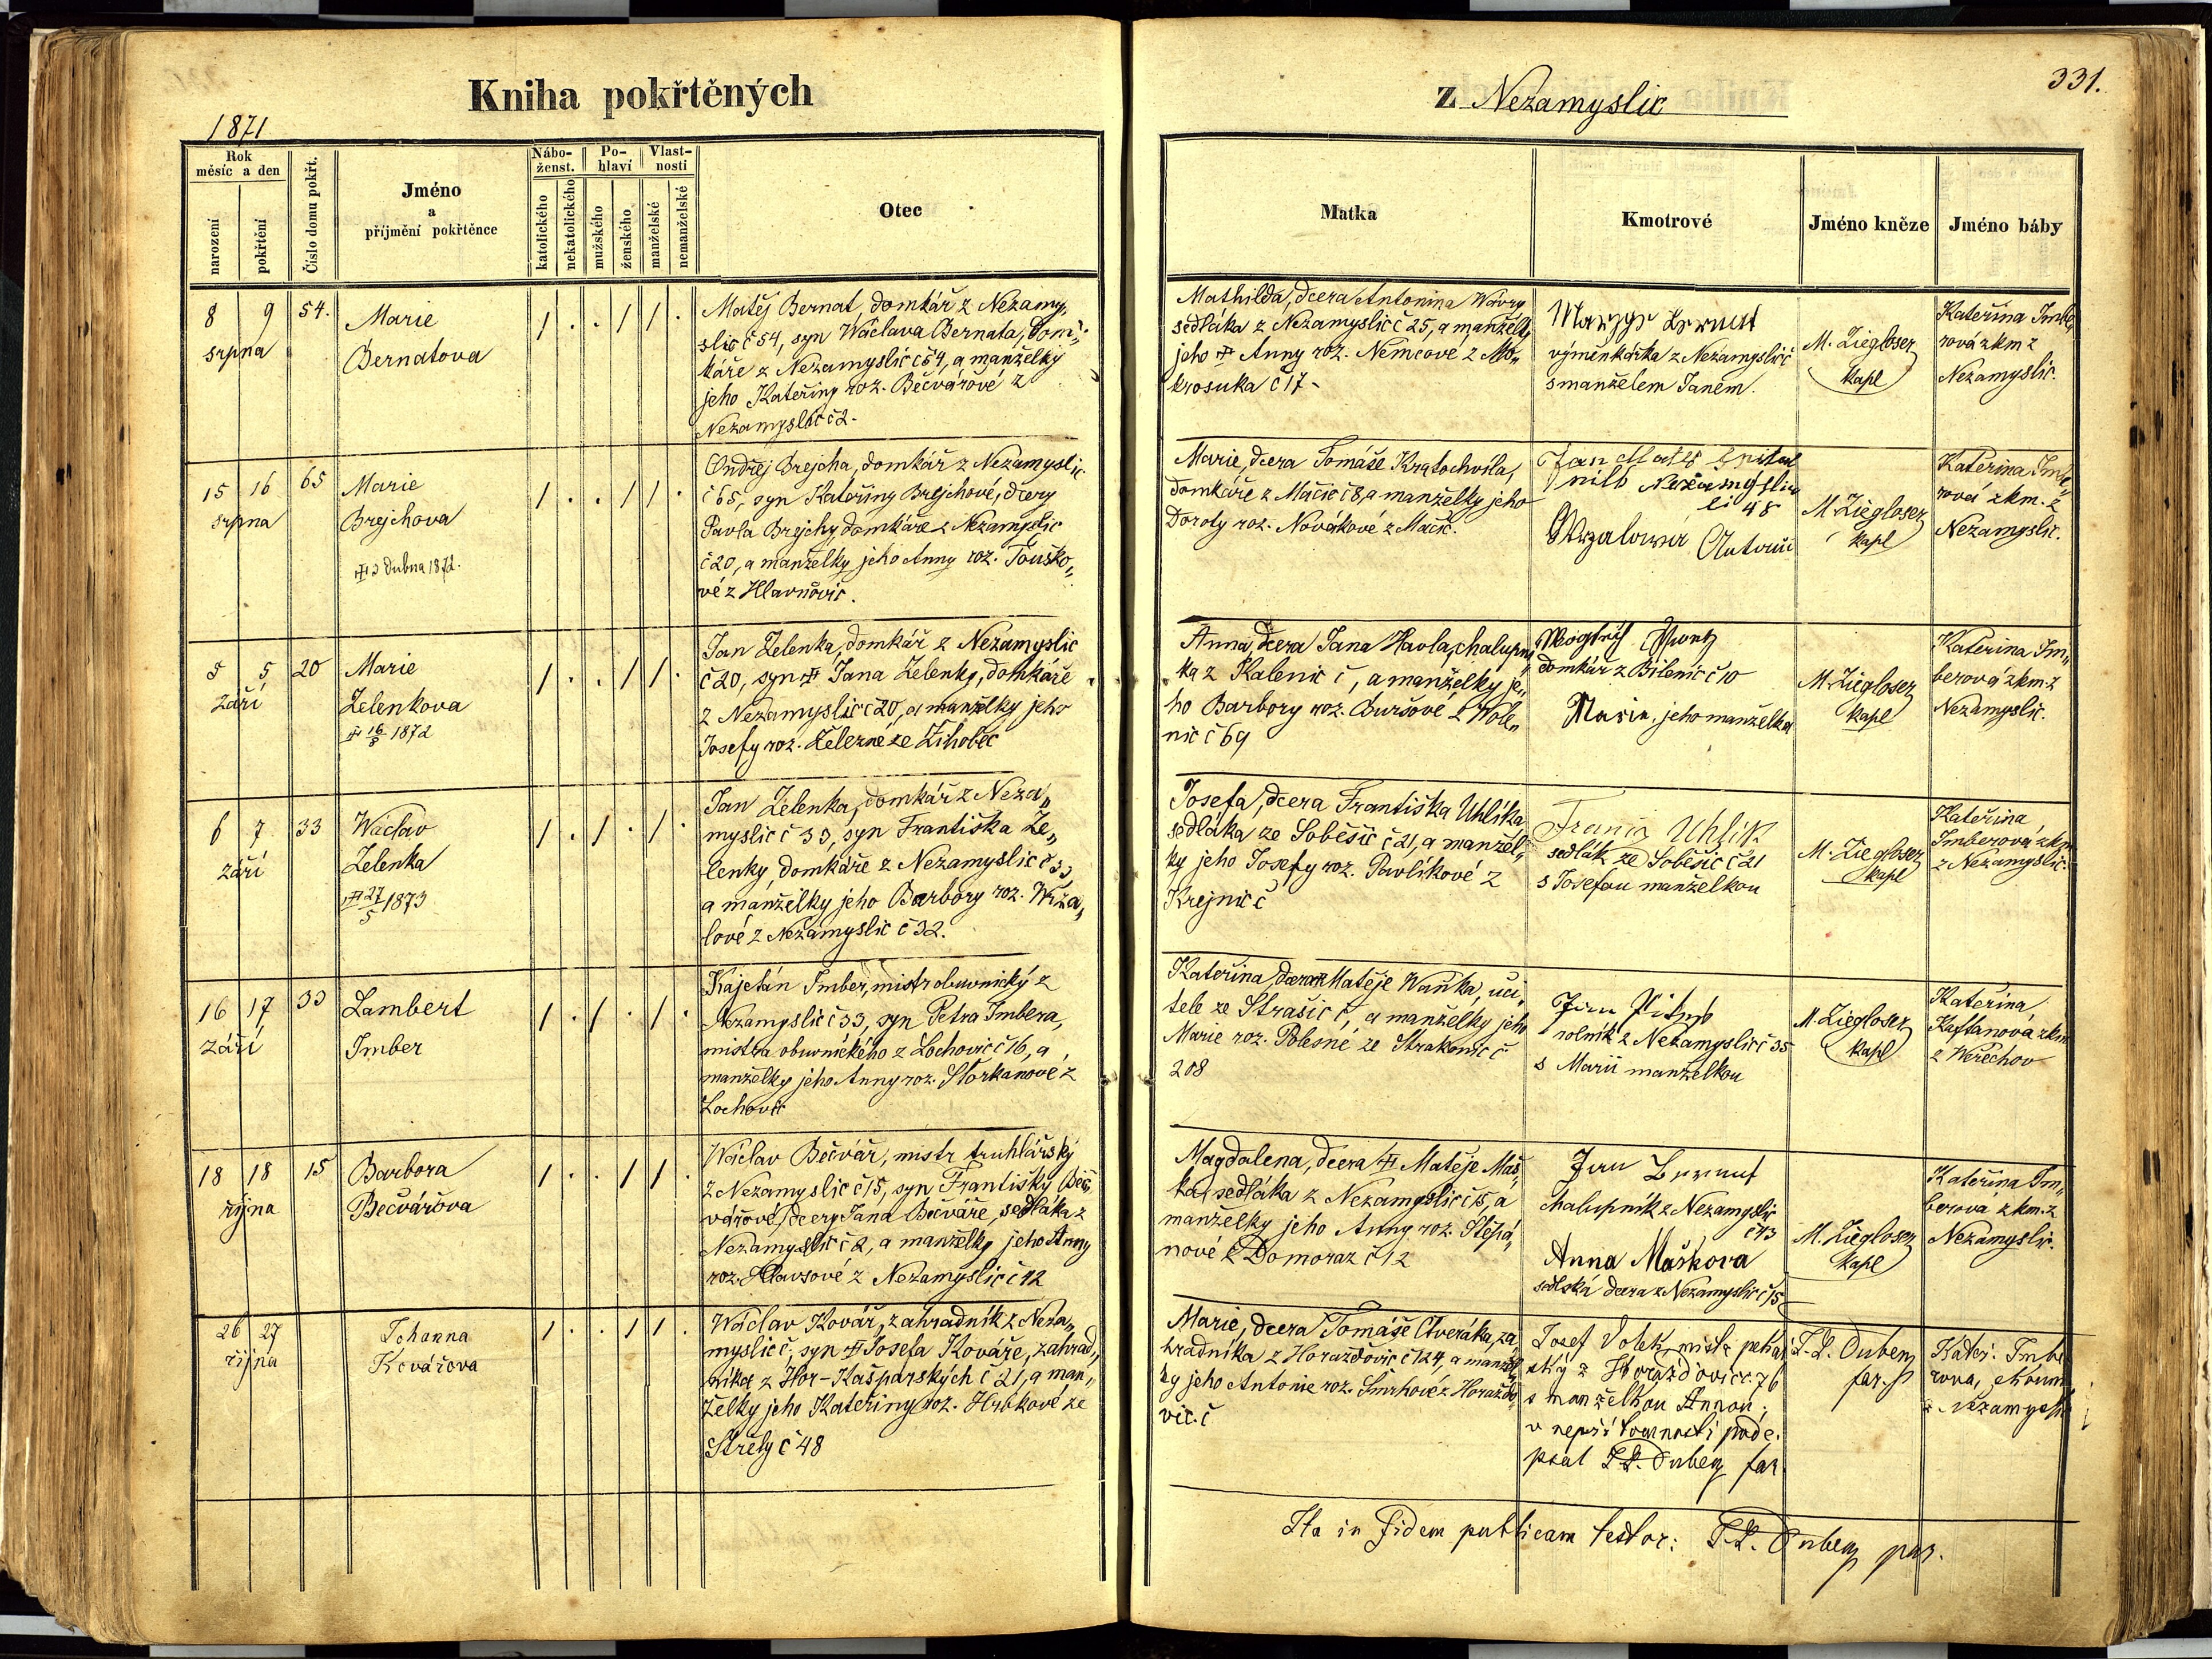 Kniha pokřtěných
z Nezamyslic
331.
1871
Rok
měsíc a den
narození
pokřtění
Číslo domu pokřt.
Jméno
a
příjmění pokřtěnce
Nábo-
ženst.
katolického
nekatolického
Po-
hlaví
mužského
ženského
Vlast-
nosti
manželské
nemanželské
Otec
Matka
Kmotrové
Jméno kněze
Jméno báby
8 9 54.
srpna
Marie
Bernatova
/ . . / / .
Matěj Bernat, domkář z Nezamy„
slic č 54, syn Wáclava Bernata, dom„
káře z Nezamyslic č 54, a manželky
jeho Kateřiny roz. Bečvářové z
Nezamyslic č 2.
Mathilda, dcera Antonína Wávry
sedláka z Nezamyslic č 25, a manželky
jeho Anny roz. Němcové z Mo„
krosuka č 17.
výměnkářka z Nezamyslic
s manželem Janem.
M. Ziegloser
kapl
Kateřina Imbe
rová zkm z
Nezamyslic.
15 16 65
srpna
Marie
Brejchova
3 dubna 1872.
/ . . / / .
Ondřej Brejcha, domkář z Nezamyslic
č 65, syn Kateřiny Brejchové, dcery
Pavla Brejchy, domkáře z Nezamyslic
č 20, a manželky jeho Anny roz. Touško„
vé z Hlavňovic.
Marie, dcera Tomáše Kratochvíla,
domkáře z Mačic č 8, a manželky jeho
Doroty roz. Novákové z Mačic.
Jan
48
M. Ziegloser
kapl
Kateřina Imbe„
rová zkm. z
Nezamyslic.
5 5 20
září
Marie
Zelenkova
16/8 1872
/ . . / / .
Jan Zelenka, domkář z Nezamyslic
č 20, syn Jana Zelenky, domkáře
z Nezamyslic č 20, a manželky jeho
Josefy roz. Železné ze Žihobec
Anna, dcera Jana Havla, chalupní
ka z Kalenic č, a manželky je„
ho Barbory roz. Buršové z Wole„
nic č 69
domkář z Bílenic č 10
Marie, jeho manželka
M. Ziegloser
kapl
Kateřina Im„
berová zkm. z
Nezamyslic.
6 7 33
září
Wáclav
Zelenka
27/5 1873
/ . / . / .
Jan Zelenka, domkář z Neza„
myslic č 33, syn Františka Ze„
lenky, domkáře z Nezamyslic č 33
a manželky jeho Barbory roz. Wrza„
lové z Nezamyslic č 32.
Josefa, dcera Františka Uhlíka
sedláka ze Soběšic č 21, a manžel„
ky jeho Josefy roz. Pavlíkové z
Krejnic č
Uhlik
sedlák ze Soběšic č 21
s Josefou manželkou
M. Ziegloser
kapl
Kateřina
Imberová zkm
z Nezamyslic.
16 17 33
září
Lambert
Imber
/ . / . / .
Kajetán Imber, mistr obuvnický z
Nezamyslic č 33, syn Petra Imbera,
mistra obuvnického z Lochovic č 16, a
manželky jeho Anny roz. Štorkanové z
Lochovic
Kateřina, dcera Matěje Waňka, uči„
tele ze Strašic č, a manželky jeho
Marie roz. Polesné ze Strakonic č
208
Jan
rolník z Nezamyslic č 35
s Marií manželkou
M. Ziegloser
kapl
Kateřina
Kaftanová zkm
z Weřechov
18 18 15
října
Barbora
Bečvářova
/ . . / / .
Wáclav Bečvář, mistr truhlářský
z Nezamyslic č 15, syn Františky Beč„
vářové, dcery Jana Bečváře, sedláka z
Nezamyslic č 2, a manželky jeho Anny
roz. Hlavsové z Nezamyslic č 12
Magdalena, dcera Matěje Maš„
ka, sedláka z Nezamyslic č 15, a
manželky jeho Anny roz. Štěpá„
nové z Domoraz č 12
Jan Bernat
chalupník z Nezamyslic
č 43
Anna Maškova
sedlská dcera z Nezamyslic č 15
M. Ziegloser
kapl
Kateřina Im„
berová zkm. z
Nezamyslic.
26 27
října
Johanna
Kovářova
/ . . / / .
Wáclav Kovář, zahradník z Neza„
myslic č, syn Josefa Kováře, zahrad„
níka z Hor-Kašparských č 21, a man„
želky jeho Kateřiny roz. Hrbkové ze
Střely č 48
Marie, dcera Tomáše Čtveráka, za„
hradníka z Horažďovic č 124, a manžel
ky jeho Antonie roz. Smrhové z Horaždo„
vic. č
Josef Volek, mistr peka
řský z Horažďovic č. 76
s manželkou Annou;
v nepřítomnosti pode„
psal far.
far.
Kateř. Imbe
rova, zkoum
z Nezamyslic
Ita in fidem publicam testor: